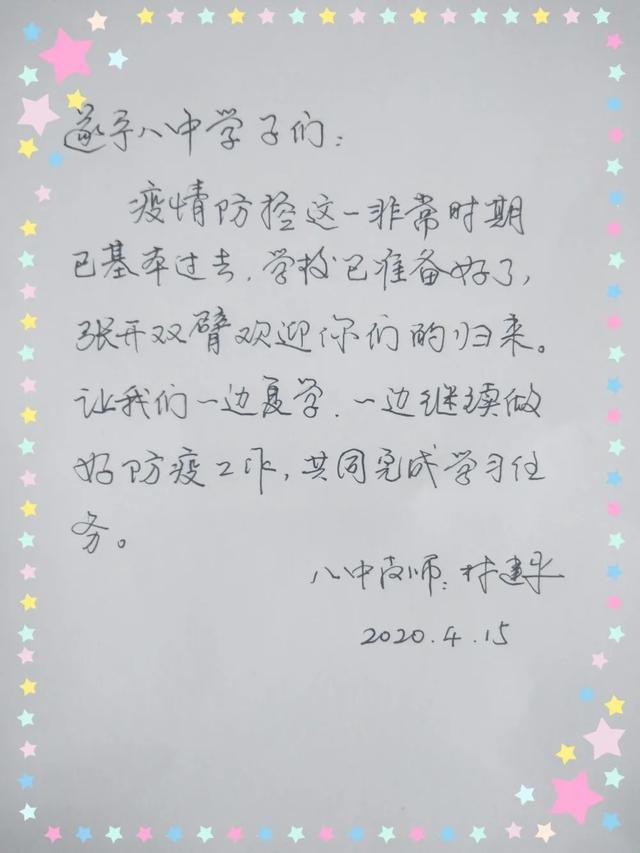 遂宁八中学子们：
疫情防控这一非常时期
已基本过去，学校已准备好了，
张开双臂欢迎你们的归来。
让我们一边复学，一边继续做
好防疫工作，共同完成学习任
务。
八中教师：林建平
2020.4.15